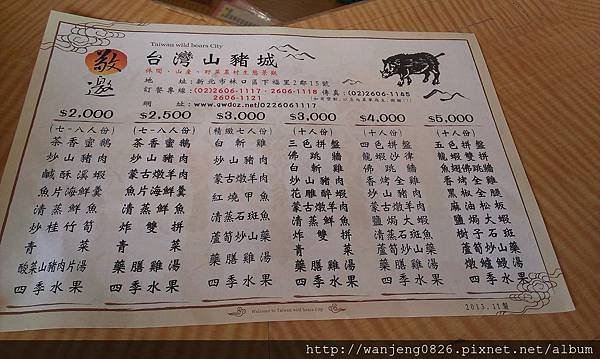 Taiwan wild boars City
敬邀
台灣山豬城
休閒・山產・野菜農村生態景觀
地　址:新北市林口區下福里2鄰15號
訂餐專線:(02)2606-1117・2606-1118 傳真:(02)2606-1165
2606-1121
網　址:www.gwdoz.net/0226061117
$2,000
(七-八人份)
茶香蜜鵝
炒山豬肉
鹹酥溪蝦
魚片海鮮羹
清蒸鮮魚
炒桂竹筍
青菜
酸菜山豬肉片湯
四季水果
$2,500
(七-八人份)
茶香蜜鵝
炒山豬肉
蒙古燉羊肉
魚片海鮮羹
清蒸鮮魚
炸雙拼
青菜
藥膳雞湯
四季水果
$3,000
(精緻七人份)
白斬雞
炒山豬肉
蒙古燉羊肉
紅燒甲魚
清蒸石斑魚
蘆筍炒山藥
藥膳雞湯
四季水果
$3,000
(十人份)
三色拼盤
佛跳牆
炒山豬肉
花雕醉蝦
蒙古燉羊肉
清蒸鮮魚
炸雙拼
青菜
藥膳雞湯
四季水果
$4,000
(十人份)
四色拼盤
龍蝦沙律
佛跳牆
香烤全雞
炒山豬肉
蒙古燉羊肉
鹽焗大蝦
清蒸石斑魚
藥膳雞湯
四季水果
$5,000
(十人份)
五色拼盤
龍蝦雙拼
魚翅佛跳牆
香烤全雞
黑椒全腿
麻油松板
鹽焗大蝦
樹子石斑
蘆筍炒山藥
燉爐鰻湯
四季水果
Welcome to Taiwan wild boars City
2013.11製
http://wanjeng0826.pixnet.net/album